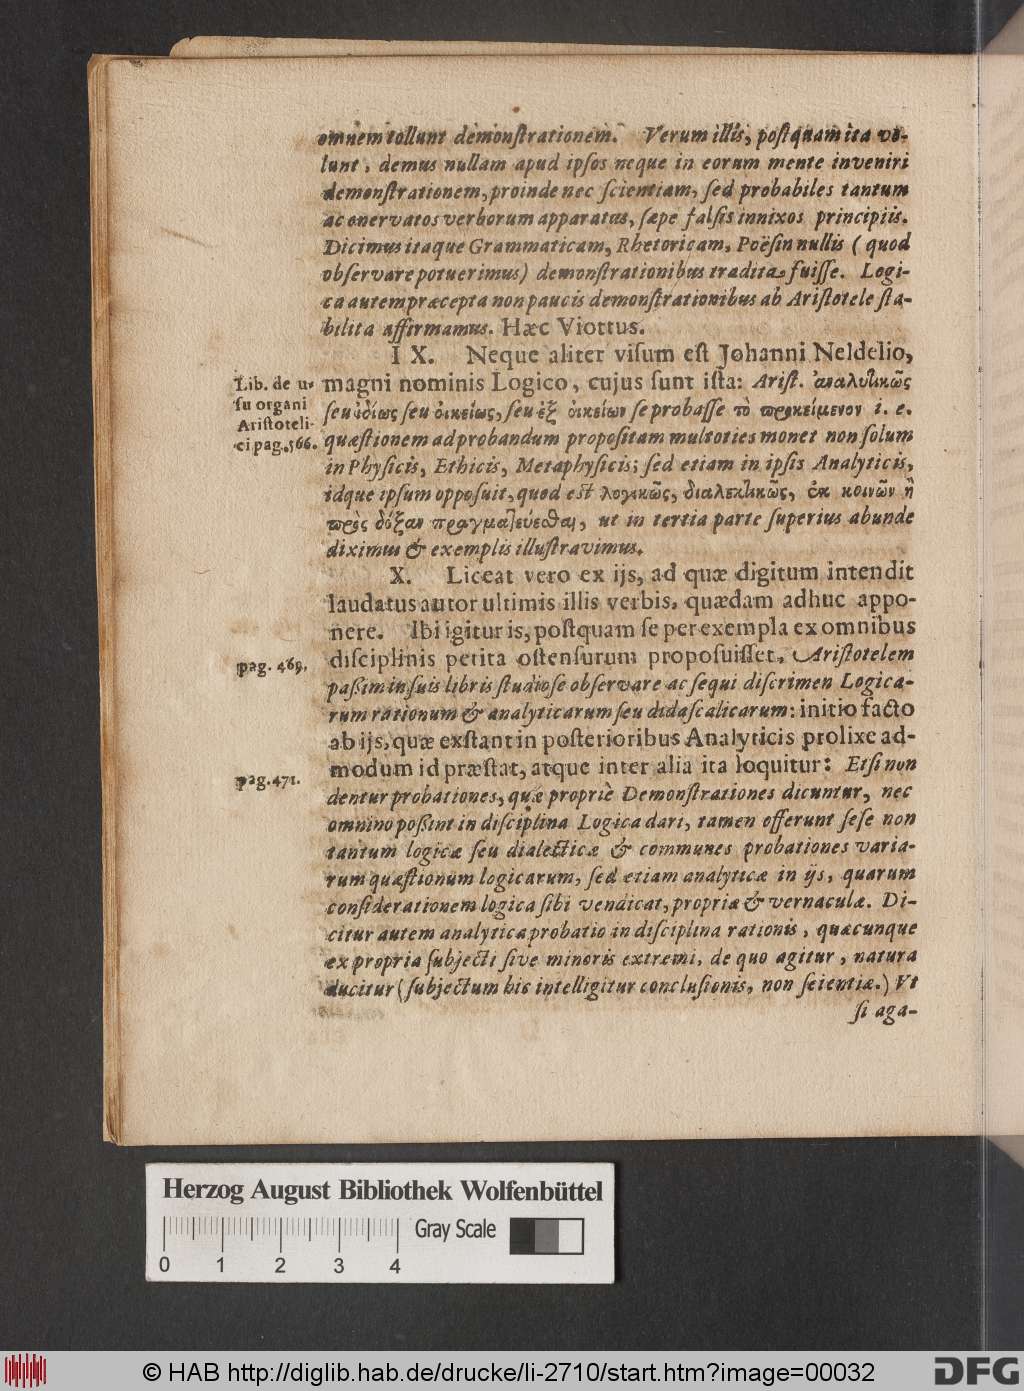 omnem tollunt demonſtrationem. Verum illis, poſtquam ita vo-
lunt, demus nullam apud ipſos neque in eorum mente inveniri
demonſtrationem, proinde nec ſcientiam, ſed probabiles tantum
ac enervatos verborum apparatus, ſæpe falſis innixos principiis.
Dicimus itaque Grammaticam, Rhetoricam, Poëſin nullis (quod
obſervare potuerimus) demonſtrationibus traditas fuiſſe. Logi-
ca autem præcepta non paucis demonſtrationibus ab Ariſtotele ſta-
bilita affirmamus. Hæc Viottus.
IX. Neque aliter viſum eſt Johanni Neldelio,
magni nominis Logico, cujus ſunt iſta: Ariſt. ἀναλυτικῶς
ſeu ἰδίως ſeu οἰκείως, ſeu ἐξ οἰκείων ſe probaſſe τὸ προκείμενον i. e.
quæſtionem ad probandum propoſitam multoties monet non ſolum
in Phyſicis, Ethicis, Metaphyſicis; ſed etiam in ipſis Analyticis,
idque ipſum oppoſuit, quod est λογικῶς, διαλεκτικῶς, ἐκ κοινῶν ἢ
πρὸς δόξαν πραγματεύεσθαι, ut in tertia parte ſuperius abunde
diximus & exemplis illuſtravimus.
Lib. de u-
ſu organi
Ariſtoteli-
ci pag. 566.
X. Liceat vero ex ijs, ad quæ digitum intendit
laudatus autor ultimis illis verbis, quædam adhuc appo-
nere. Ibi igitur is, poſtquam ſe per exempla ex omnibus
diſciplinis petita oſtenſurum propoſuiſſet, Ariſtotelem
paßim in ſuis libris ſtudioſe obſervare ac ſequi diſcrimen Logica-
rum rationum & analyticarum ſeu didaſcalicarum: initio facto
ab ijs, quæ exſtant in poſterioribus Analyticis prolixe ad-
modum id præſtat, atque inter alia ita loquitur: Etſi non
dentur probationes, quæ propriè Demonſtrationes dicuntur, nec
omnino poßint in diſciplina Logica dari, tamen offerunt ſeſe non
tantum logicæ ſeu dialecticæ & communes probationes varia-
rum quæſtionum logicarum, ſed etiam analyticæ in ijs, quarum
conſiderationem logica ſibi vendicat, propriæ & vernaculæ. Di-
citur autem analytica probatio in diſciplina rationis, quæcunque
ex propria ſubjecti ſive minoris extremi, de quo agitur, natura
ducitur (ſubjectum hic intelligitur concluſionis, non ſcientiæ.) Vt
ſi aga-
pag. 469.
pag. 471.
Herzog August Bibliothek Wolfenbüttel
Gray Scale
0 1 2 3 4
© HAB http://diglib.hab.de/drucke/li-2710/start.htm?image=00032
DFG